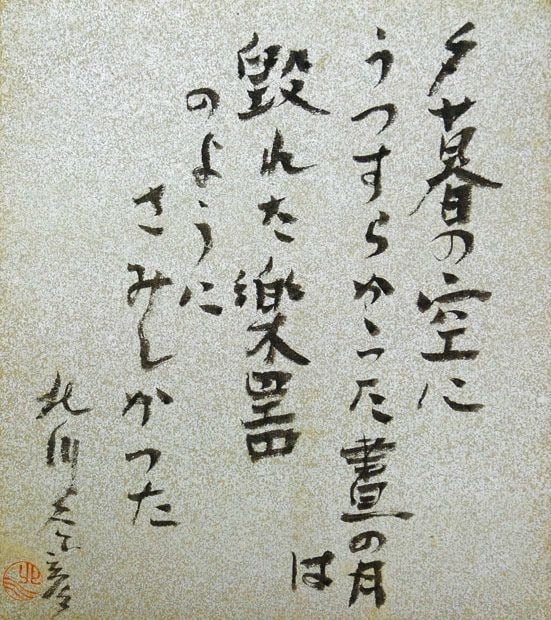 夕暮の空に
うつすらかゝつた晝の月
は
毀れた樂器
のように
さみしかつた
北川冬彦